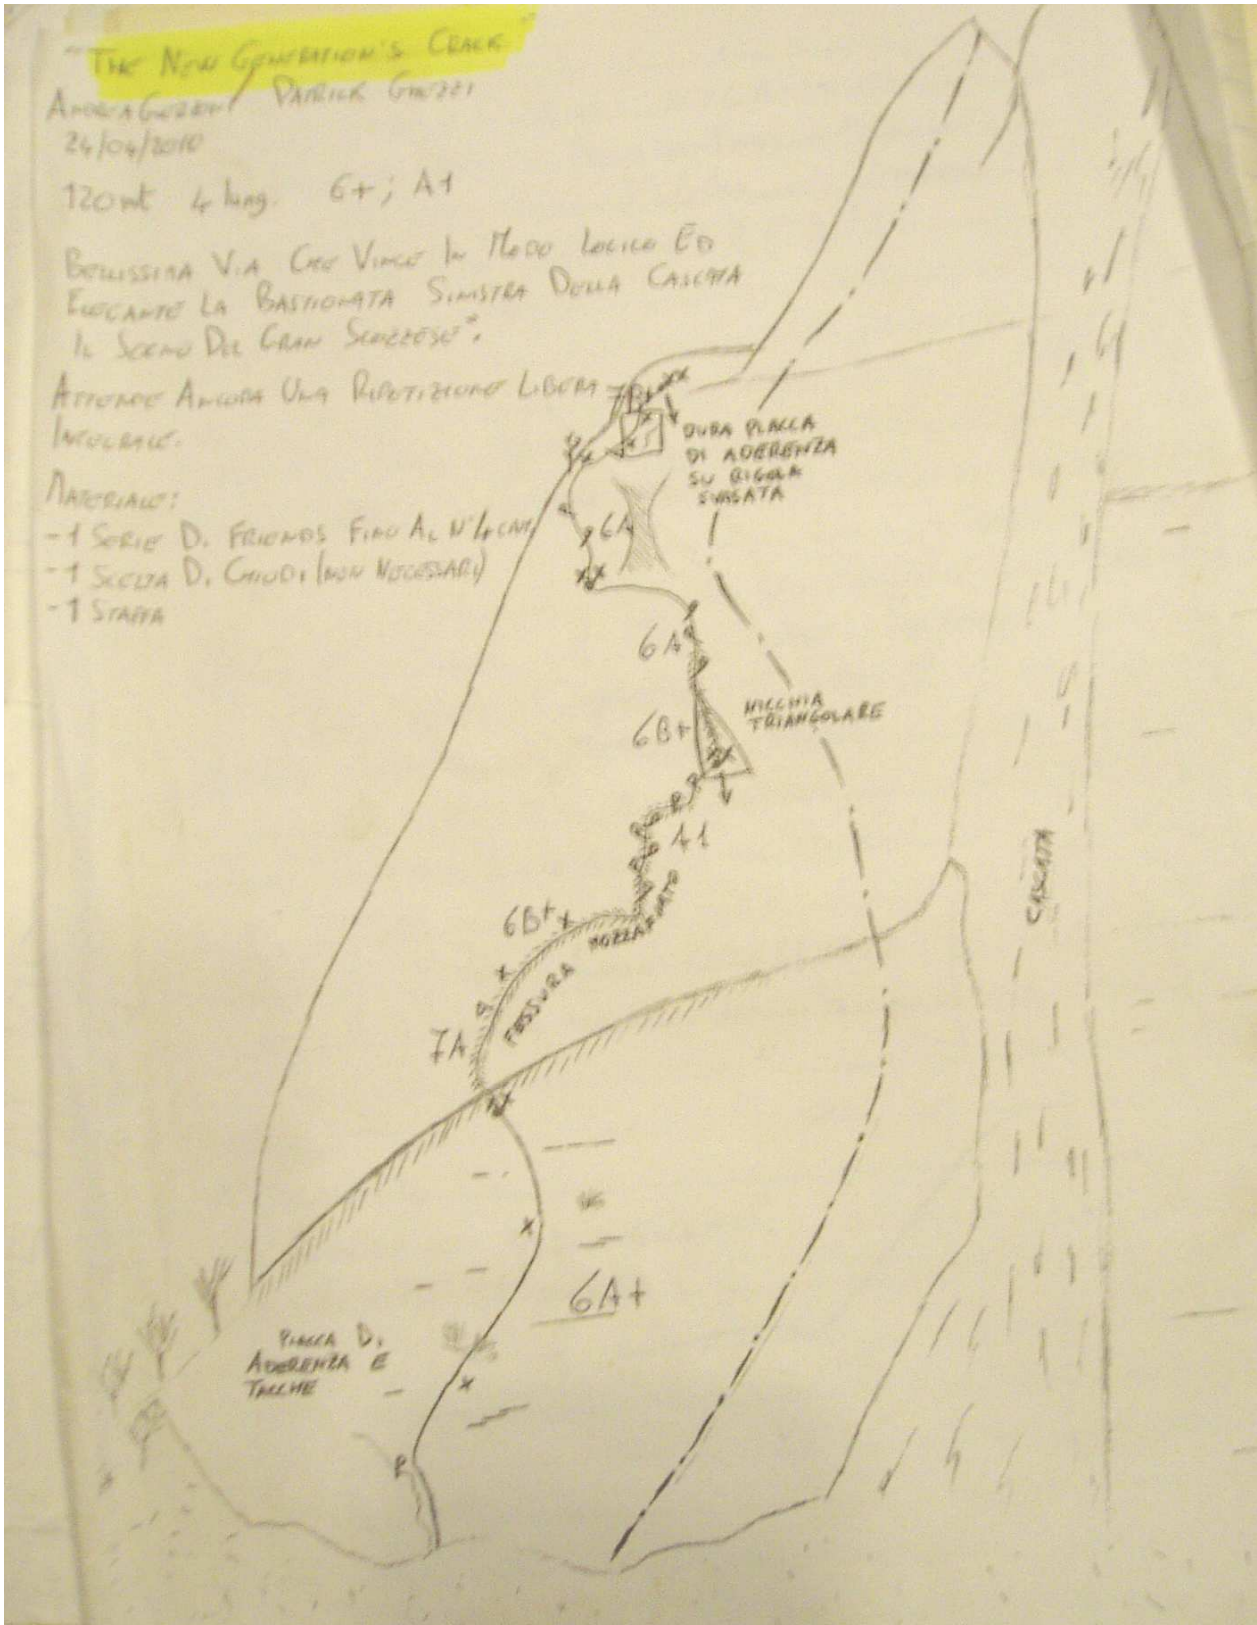 "THE NEW GENERATION'S CRACK"
PATRICK GHEZZI
24/04/2010
120mt 4 lung. 6+; A1
BELLISSIMA VIA CHE VINCE IN MODO LOGICO ED
ELEGANTE LA BASTIONATA SINISTRA DELLA CASCATA
IL SOGNO DEL GRAN SCOZZESE".
ATTENDE ANCORA UNA RIPETIZIONE LIBERA
INTEGRALE.
MATERIALE:
-1 SERIE DI FRIENDS FINO AL N°4
-1 SCELTA DI CHIODI (NON NECESSARI)
-1 STAFFA
DURA PLACCA
DI ADERENZA
SU RIGOLA
SVASATA
6A
6A
NICCHIA
TRIANGOLARE
6B+
A1
6B+
FESSURA
7A
CASCATA
6A+
PLACCA DI
ADERENZA E
TACCHE